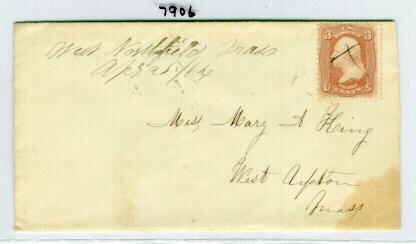 7906
West Northfield Mass
Apr 25/64
3 3
Miss Mary A King
West Upton
Mass